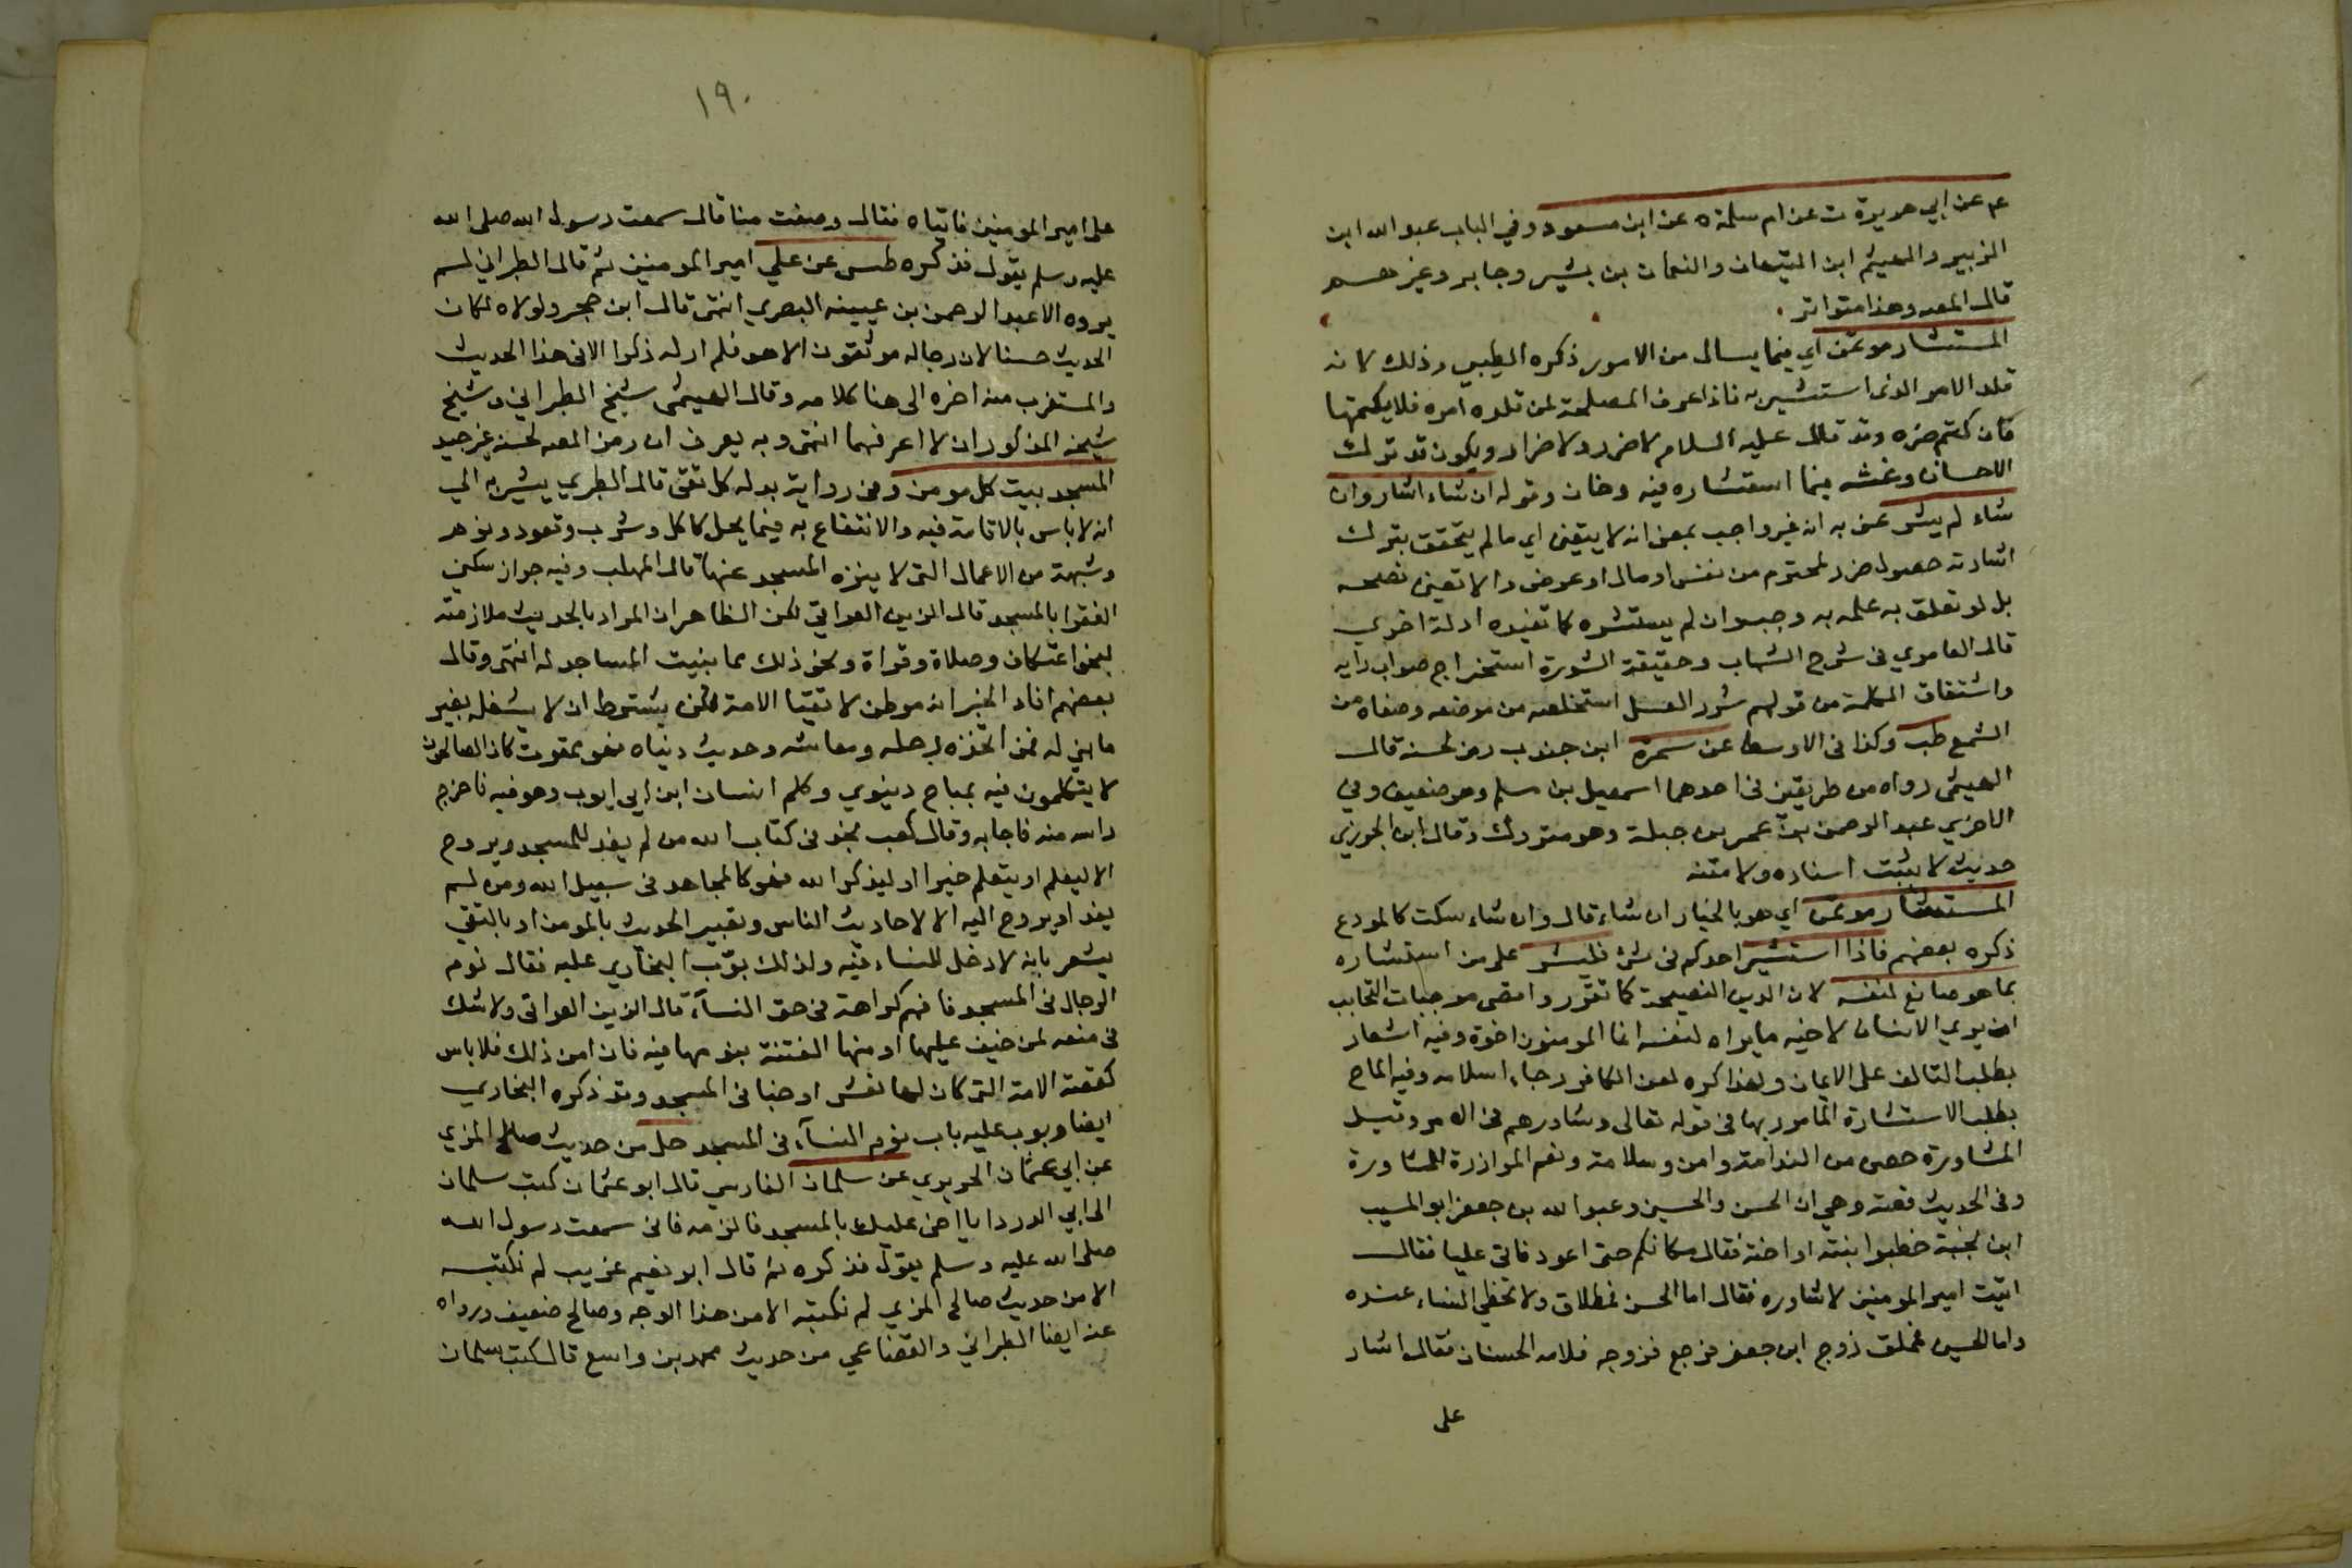 عم عن ابي هريرة ت عن ام سلمة ه عن ابن مسعود وفي الباب عبد الله ابن
الزبير والهيثم ابن التيهان والنعمان بن بشير وجابر وغيرهم
قال المص وهذا متواتر
المستشار موتمن اي فيما يسال من الامور ذكره الطيبي وذلك لانه
قلد الامر الذي استشير به فاذا عرف المصلحة لمن قلده امره فلا يكتمها
فان كتم ضره وقد قال عليه السلام لا ضرر ولا ضرار ويكون قد ترك
الاحسان وغشه فيما استشاره فيه وخان وقوله ان شاء اشار وان
شاء لم يشر عن به انه غير واجب بمعنى انه لا يتعين اي ما لم يتحقق بترك
اشارته حصول ضرر لمحترم من نفس او مال او عرض والا تعين نصحه
بل لو تعلق به علمه به وجب وان لم يستشره كما تفيده ادلة اخرى
قال العامري في شرح الشهاب وحقيقة الشورة استخراج صواب رايه
واشتقاق الكلمة من قولهم شور العسل استخلصه من موضعه وصفاه من
الشمع طب وكذا في الاوسط عن سمرة ابن جندب رمز لحسنه قال
الهيثمى رواه من طريقين في احدهما اسمعيل بن مسلم وهو ضعيف وفي
الاخرى عبد الرحمن بن عمر بن جبلة وهو متروك وقال ابن الجوزي
حديث لا يثبت اسناده ولا متنه
المستشار موتمن اي هو بالخيار ان شاء قال وان شاء سكت كالمودع
ذكره بعضهم فاذا استشير احدكم في شئ فليشر على من استشاره
بما هو صانع لنفسه لان الدين النصيحة كما تقرر واقصى موجبات التحابب
ان يرى الانسان لاخيه ما يراه لنفسه انما المومنون اخوة وفيه اشعار
بطلب التالف على الايمان ولهذا كره لعن الكافر رجاء اسلامه وفيه الماح
بطلب الاستشارة المامور بها في قوله تعالى وشاورهم في الامر وقيل
المشاورة حصن من الندامة وامن وسلامة ونعم الموازرة المشاورة
وفى الحديث قصة وهي ان الحسن والحسين وعبد الله بن جعفر ابو المسيب
ابن نجبة خطبوا بنته او اخته فقال مكانكم حتى اعود فاتى عليا فقال
اتيت امير المومنين لاشاوره فقال اما الحسن فمطلاق ولا تحظى النساء عنده
واما الحسين فملق زوج ابن جعفر فرجع فزوجه فلامه الحسنان فقال اشار
على
١٩٠
على امير المومنين فاتياه فقال وضعت منا قال سمعت رسول الله صلى الله
عليه وسلم يقول فذكره طس عن علي امير المومنين ثم قال الطبراني لم
يروه الا عبد الرحمن بن عيينه البصري انتهى قال ابن حجر ولولاه لكان
الحديث حسنا لان رجاله موثقون الا هو فلم ار له ذكرا الا في هذا الحديث
والمستغرب منه اخره الى هنا كلامه وقال الهيثمى شيخ الطبراني وشيخ
شيخه المذكوران لا اعرفهما انتهى وبه يعرف ان رمز المص لحسنه غير جيد
المسجد بيت كل مومن وفى رواية بدله كل تقي قال الطبري يشير به الى
انه لا باس بالاقامة فيه والانتفاع به فيما يحل كاكل وشرب وقعود ونوم
وشبهه من الاعمال التى لا ينزه المسجد عنها قال المهلب وفيه جواز سكنى
الفقرا بالمسجد قال الزين العراقي لكن الظاهر ان المراد بالحديث ملازمته
لنحو اعتكاف وصلاة وقراة ونحو ذلك مما بنيت المساجد له انتهى وقال
بعضهم افاد الخبر انه موطن لاتقيا الامة لكن يشترط ان لا يشغله بغير
ما بني له فمن اتخذه لرحله ومعاشه وحديث دنياه فهو ممقوت كان الصالحون
لا يتكلمون فيه بمباح دنيوي وكلم انسان ابن ابي ايوب وهو فيه فاخرج
راسه منه فاجابه وقال كعب نجد فى كتاب الله من لم يغد للمسجد ويروح
الا ليعلم او يتعلم خيرا او ليذكر الله فهو كالمجاهد فى سبيل الله ومن لم
يغد او يروح اليه الا لاحاديث الناس وتعبير الحديث بالمومن او بالتقي
يشعر بانه لا دخل للنساء فيه ولذلك بوب البخاري عليه فقال نوم
الرجال في المسجد فافهم كراهة فى حق النسآء قال الزين العراقى ولا شك
فى منعه لمن خيف عليها او منها الفتنة بنومها فيه فان امن ذلك فلا باس
كقصة الامة التى كان لها حفش او خبا فى المسجد وقد ذكره البخاري
ايضا وبوب عليه باب نوم النسآء فى المسجد حل من حديث صالح المزي
عن ابي عثمان الجريري عن سلمان الفارسي قال ابو عثمان كتب سلمان
الى ابي الدردا يا اخى عليك بالمسجد فالزمه فانى سمعت رسول الله
صلى الله عليه وسلم يقول فذكره ثم قال ابو نعيم غريب لم نكتبه
الا من حديث صالح المزي لم نكتبه الا من هذا الوجه وصالح ضعيف ورواه
عنه ايضا الطبراني والقضاعي من حديث محمد بن واسع قال كتب سلمان